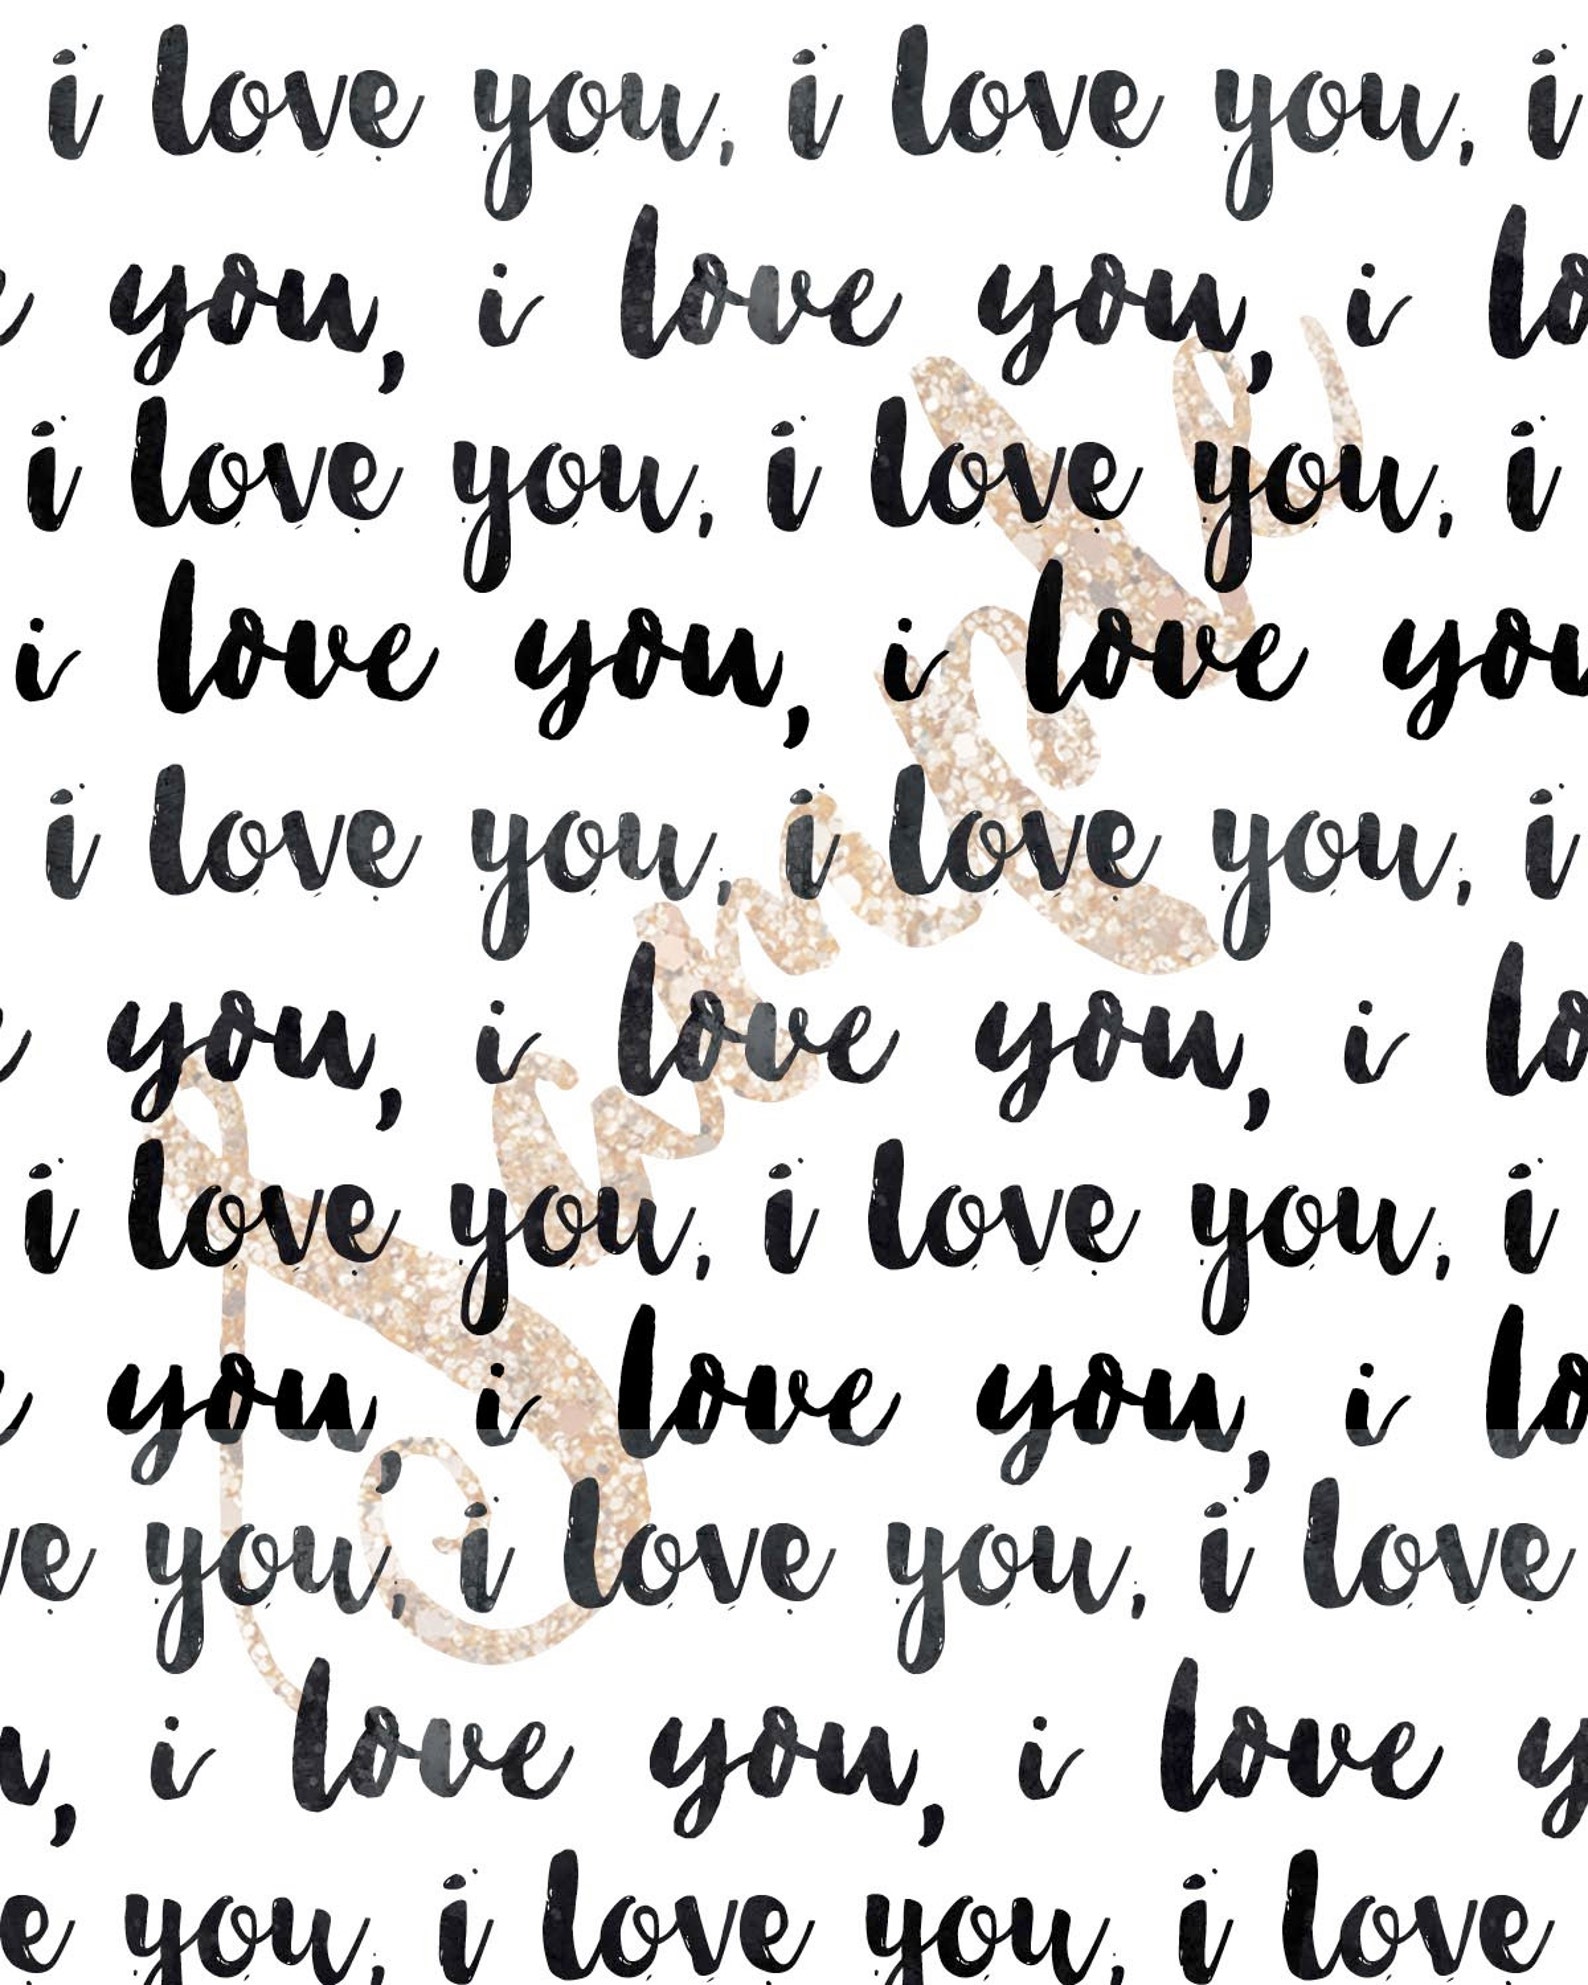 i love you, i love you, i
e you, i love you, i lo
i love you, i love you, i
i love you, i love you
i love you, i love you, i
e you, i love you, i lo
i love you, i love you, i
e you, i love you, i lo
ve you, i love you, i love
u, i love you, i love y
e you, i love you, i love
Sample